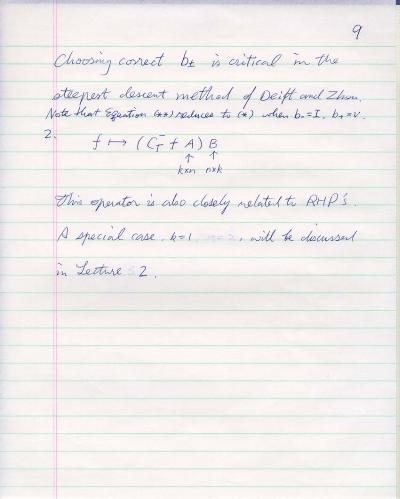 9
Choosing correct b± is critical in the
steepest descent method of Deift and Zhou.
Note that Equation (**) reduces to (*) when b₋=I, b₊=v.
2.
f ↦ (C⁻_Γ f A) B
↑ ↑
k×n n×k
This operator is also closely related to RHP's.
A special case, k=1, n=2, will be discussed
in Lecture 2.